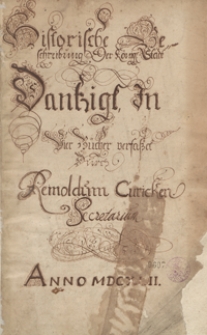 Historische Be
schreibung Der König: Stadt
Dantzigk, In
Vier Bücher verfasset
Durch
Remoldum Curicken
Secretarium
ANNO MDC